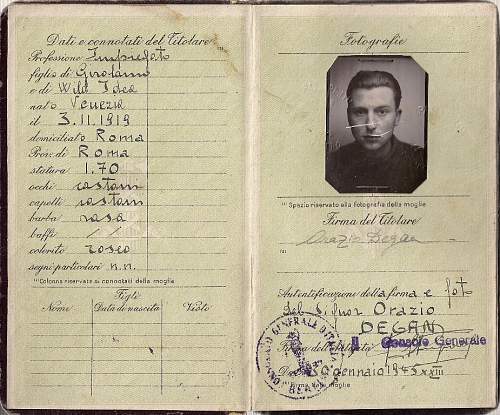 Dati e connotati del Titolare
Professione Impiegato
figlio di Girolamo
e di Wild Idea
nato Venezia
il 3.11.1919
domiciliato Roma
Prov. di Roma
statura 1.70
occhi castani
capelli castani
barba rasa
baffi //
colorito roseo
segni particolari n.n.
(*)Colonna riservata ai connotati della moglie
Figli
Nome Data di nascita Visto
Fotografie
(*) Spazio riservato alla fotografia della moglie
Firma del Titolare
Orazio Degan
Autentificazione della firma e foto
del Signor Orazio
DEGAN
Firma dell'
Il Console Generale
gennaio 1945 XXIII
(*) Firma della moglie
CONSOLATO GENERALE D'ITALIA